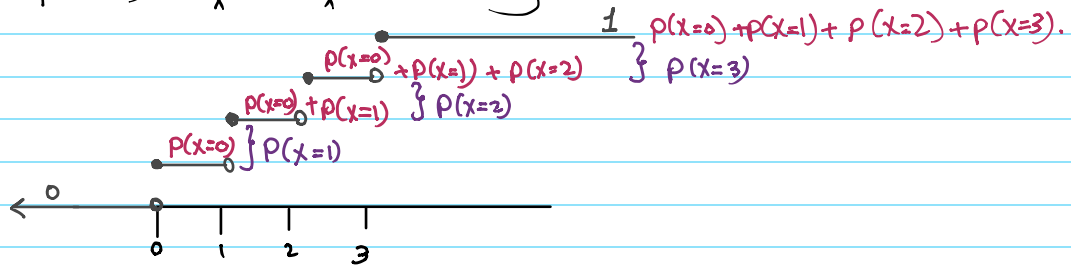 1 P(X=0) + P(X=1) + P(X=2) + P(X=3).
P(X=0) + P(X=1) + P(X=2) } P(X=3)
P(X=0) + P(X=1) } P(X=2)
P(X=0) } P(X=1)
0
0 1 2 3